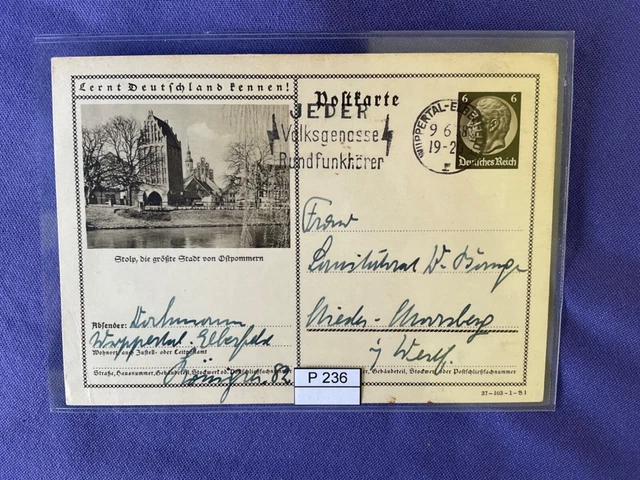 Lernt Deutschland kennen!
Postkarte
JEDER
Volksgenosse
Rundfunkhörer
WUPPERTAL-E
9 6
19-2
6 6
Deutsches Reich
Stolp, die größte Stadt von Ostpommern
Frau
Sanitätsrat Dr.
Nieder-Marsberg
i/Westf.
Absender: Dortmann
Wuppertal-Elberfeld
Wohnort, auch Zustell- oder Leitpostamt
82
Straße, Hausnummer, Gebäudeteil, Stockwerk od. Postschließfachnummer
Gebäudeteil, Stockwerk oder Postschließfachnummer
P 236
37-103-1-B1